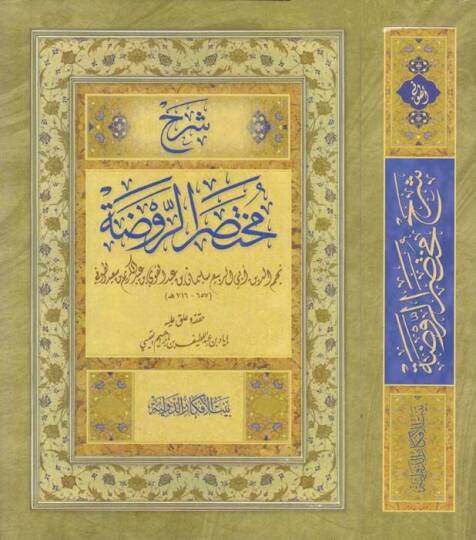 شرح
مختصر الروضة
نجم الدين أبي الربيع سليمان بن عبد القوي بن عبد الكريم بن سعيد الطوفي
(٦٥٧ - ٧١٦ هـ)
حققه وعلق عليه
إياد بن عبد اللطيف بن إبراهيم القيسي
بيت الأفكار الدولية
الطوفي
شرح مختصر الروضة
بيت الأفكار الدولية